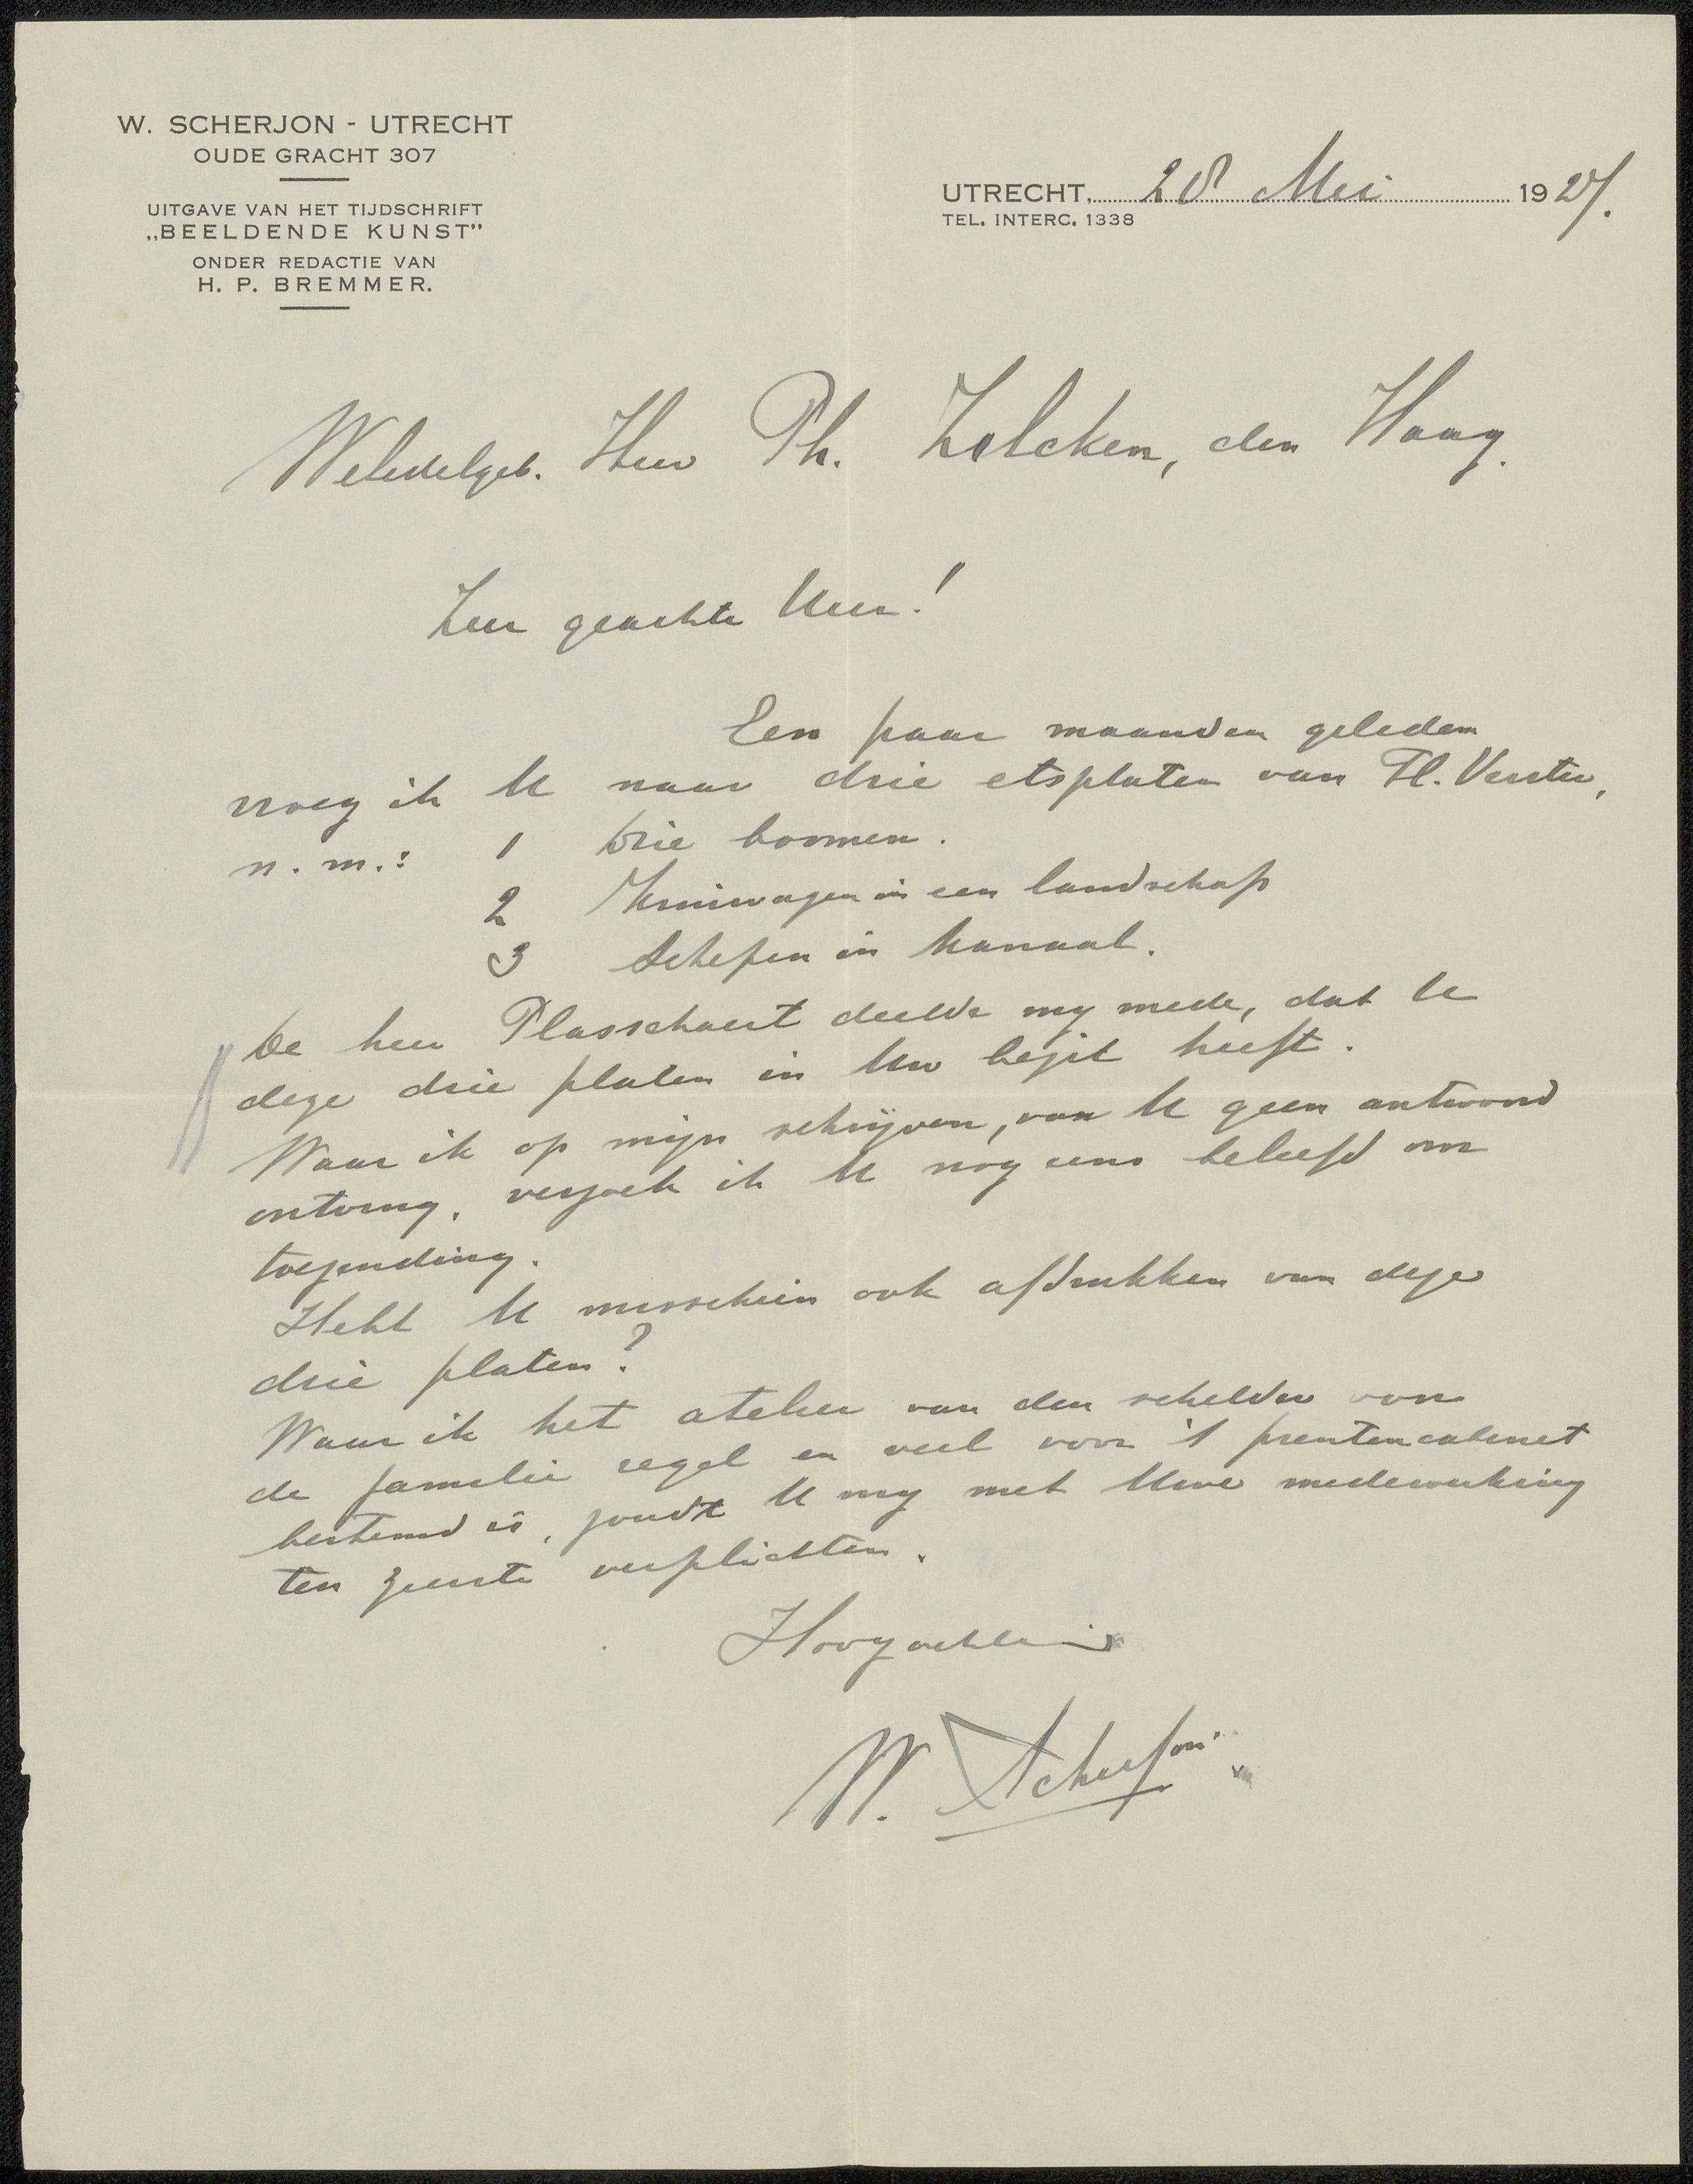 W. SCHERJON - UTRECHT
OUDE GRACHT 307
UITGAVE VAN HET TIJDSCHRIFT
„BEELDENDE KUNST”
ONDER REDACTIE VAN
H. P. BREMMER.
UTRECHT, 28 Mei 1927.
TEL. INTERC. 1338
Weledelgeb. Heer Ph. Zilcken, den Haag.
Zeer geachte Heer!
Een paar maanden geleden
vroeg ik U naar drie etsplaten van Fl. Verster,
n. m.: 1 Drie boomen.
2 Kruiwagen in een landschap
3 Schepen in Kanaal.
De heer Plasschaert deelde mij mede, dat U
deze drie platen in Uw bezit heeft.
Waar ik op mijn schrijven, van U geen antwoord
ontving, verzoek ik U nog eens beleefd om
toezending.
Hebt U misschien ook afdrukken van deze
drie platen?
Waar ik het atelier van den schilder voor
de familie regel en veel voor 't prentencabinet
bestemd is, zoudt U mij met Uwe medewerking
ten zeerste verplichten.
Hoogachtend
W. Scherjon